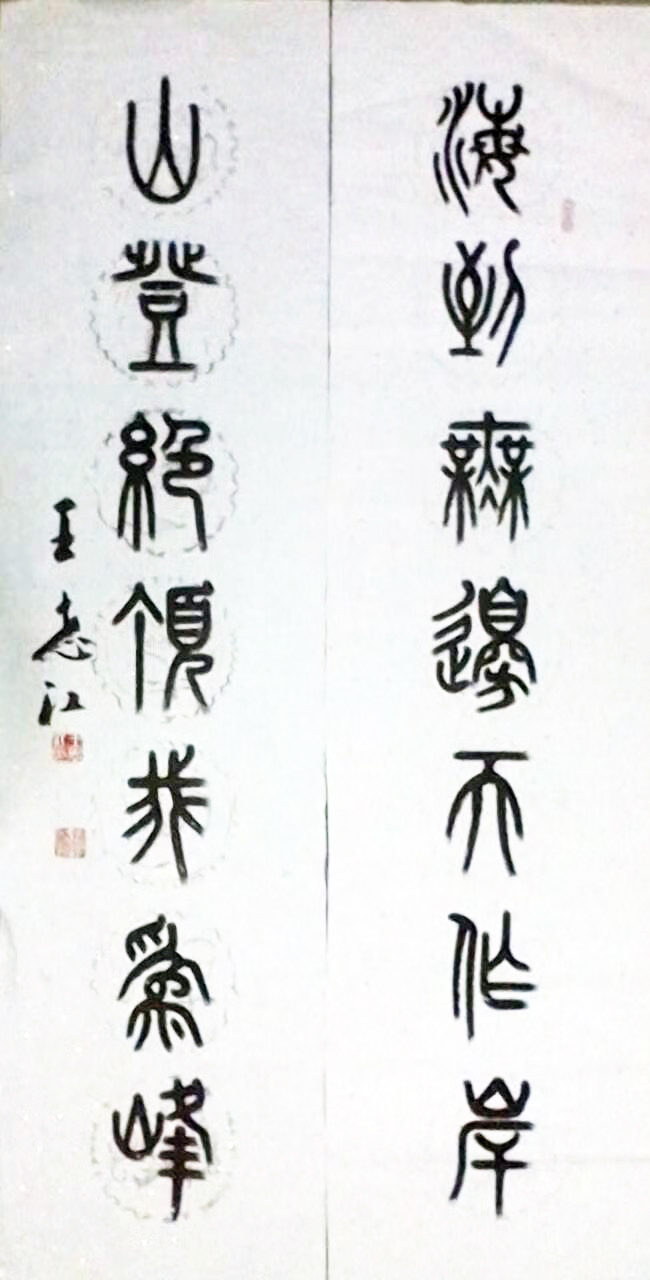 海到無邊天作岸
山登絕頂我為峰
王志江